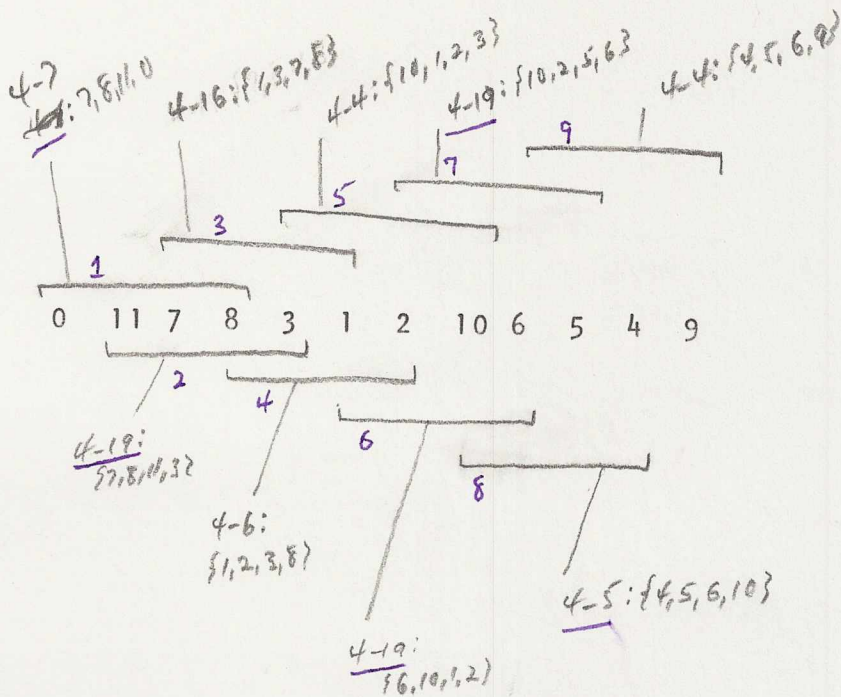 4-7
: 7,8,11,0
4-16:{1,3,7,8}
4-4:{10,1,2,3}
4-19:{10,2,5,6}
4-4:{4,5,6,9}
9
7
5
3
1
0 11 7 8 3 1 2 10 6 5 4 9
2
4
6
8
4-19:
{7,8,11,3}
4-6:
{1,2,3,8}
4-5:{4,5,6,10}
4-19:
{6,10,1,2}